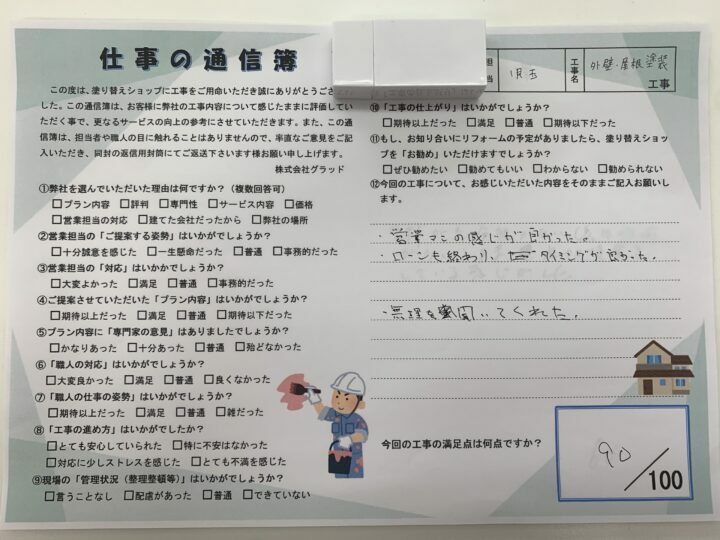 仕事の通信簿
この度は、塗り替えショップに工事をご用命いただき誠にありがとうござ
した。この通信簿は、お客様に弊社の工事内容について感じたままに評価してい
ただく事で、更なるサービスの向上の参考にさせていただきます。また、この通
信簿は、担当者や職人の目に触れることはありませんので、率直なご意見をご記
入いただき、同封の返信用封筒にてご返送下さいます様お願い申し上げます。
株式会社グラッド
①弊社を選んでいただいた理由は何ですか?（複数回答可）
□プラン内容 □評判 □専門性 □サービス内容 □価格
□営業担当の対応 □建てた会社だったから □弊社の場所
②営業担当の「ご提案する姿勢」はいかがでしょうか?
□十分誠意を感じた □一生懸命だった □普通 □事務的だった
③営業担当の「対応」はいかがでしょうか?
□大変よかった □満足 □普通 □事務的だった
④ご提案させていただいた「プラン内容」はいかがでしょうか?
□期待以上だった □満足 □普通 □期待以下だった
⑤プラン内容に「専門家の意見」はありましたでしょうか?
□かなりあった □十分あった □普通 □殆どなかった
⑥「職人の対応」はいかがでしょうか?
□大変良かった □満足 □普通 □良くなかった
⑦「職人の仕事の姿勢」はいかがでしょうか?
□期待以上だった □満足 □普通 □雑だった
⑧「工事の進め方」はいかがでしたか?
□とても安心していられた □特に不安はなかった
□対応に少しストレスを感じた □とても不満を感じた
⑨現場の「管理状況（整理整頓等）」はいかがでしょうか?
□言うことなし □配慮があった □普通 □できていない
担当 児玉 工事名 外壁・屋根塗装 工事
⑩「工事の仕上がり」はいかがでしょうか?
□期待以上だった □満足 □普通 □期待以下だった
⑪もし、お知り合いにリフォームの予定がありましたら、塗り替えショッ
プを「お勧め」いただけますでしょうか?
□ぜひ勧めたい □勧めてもいい □わからない □勧められない
⑫今回の工事について、お感じいただいた内容をそのままご記入お願いし
ます。
・営業マンの感じが良かった。
・ローンも終わり、タイミングが良かった。
・無理を聞いてくれた。
今回の工事の満足点は何点ですか?
90/100